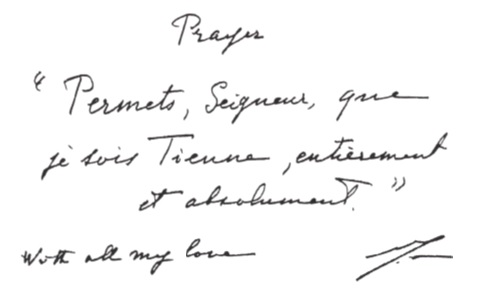 Prayer
"Permets, Seigneur, que
je sois Tienne, entièrement
et absolument."
With all my love